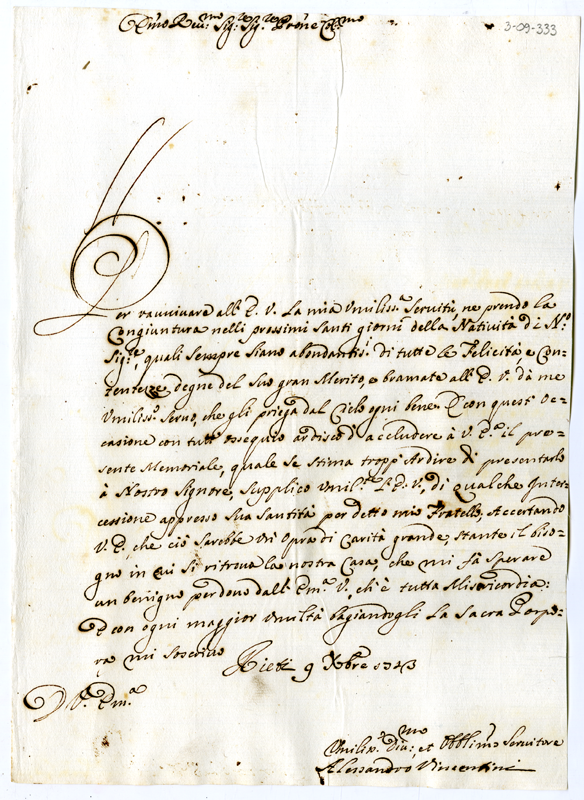 3-09-333
Em̃o Rev:mo Sig:re Sig:re Prone Col:mo
Per ravvivare all'E. V. la mia Umiliss:a Servitù, ne prendo la
Congiuntura nelli prossimi Santi giorni della Natività di N:ro
Sig:re, quali sempre siano abondantis:i di tutte le Felicità, e Con-
tentezze degne del Suo gran Merito, e bramate all'E. V. dà me
Umiliss:o Servo, che gli priega dal Cielo ogni bene. E con quest'Oc-
casione con tutt'ossequio ardisco di accludere à V. E. il pre-
sente Memoriale, quale se stima tropp'Ardire di presentarlo
à Nostro Signore, Supplico Umil:e l'E. V., di qualche Inter-
cessione appresso Sua Santità per detto mio Fratello, Accertando
V. E., che ciò sarebbe un'Opra di Carità grande, stante il biso-
gno in cui si ritrova la nostra Casa, che mi fà sperare
un benigno perdono dall'Em:a V. ch'è tutta Misericordia:
E con ogni maggior Umiltà bagiandogli la Sacra Porpo-
ra mi soscrivo Rieti 9 Xbre 1743
D V:a Em:a
Umiliss:o Div:mo et Obblim̃o Servitore
Alessandro Vincentini